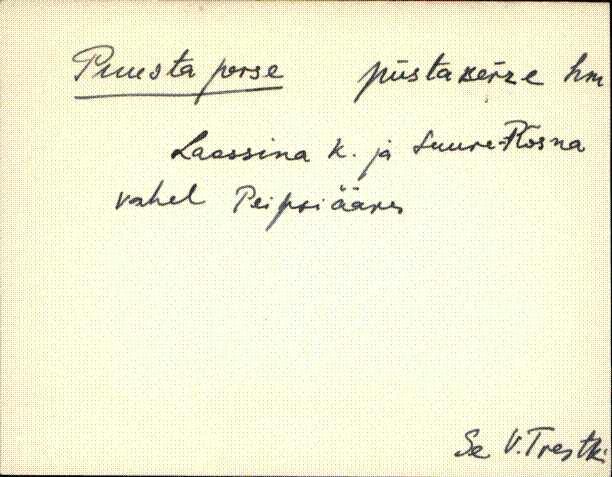 Puusta perse püstaᴋèrze hm
Laossina k. ja Suure-Rõsna
vahel Peipsi ääres
Se V. Trestki